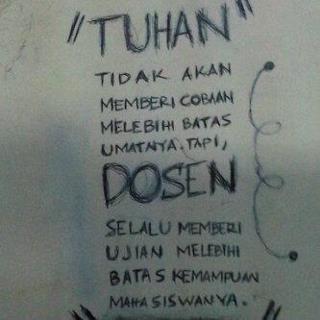 "TUHAN"
TIDAK AKAN
MEMBERI COBAAN
MELEBIHI BATAS
UMATNYA. TAPI,
DOSEN
SELALU MEMBERI
UJIAN MELEBIHI
BATAS KEMAMPUAN
MAHASISWANYA.